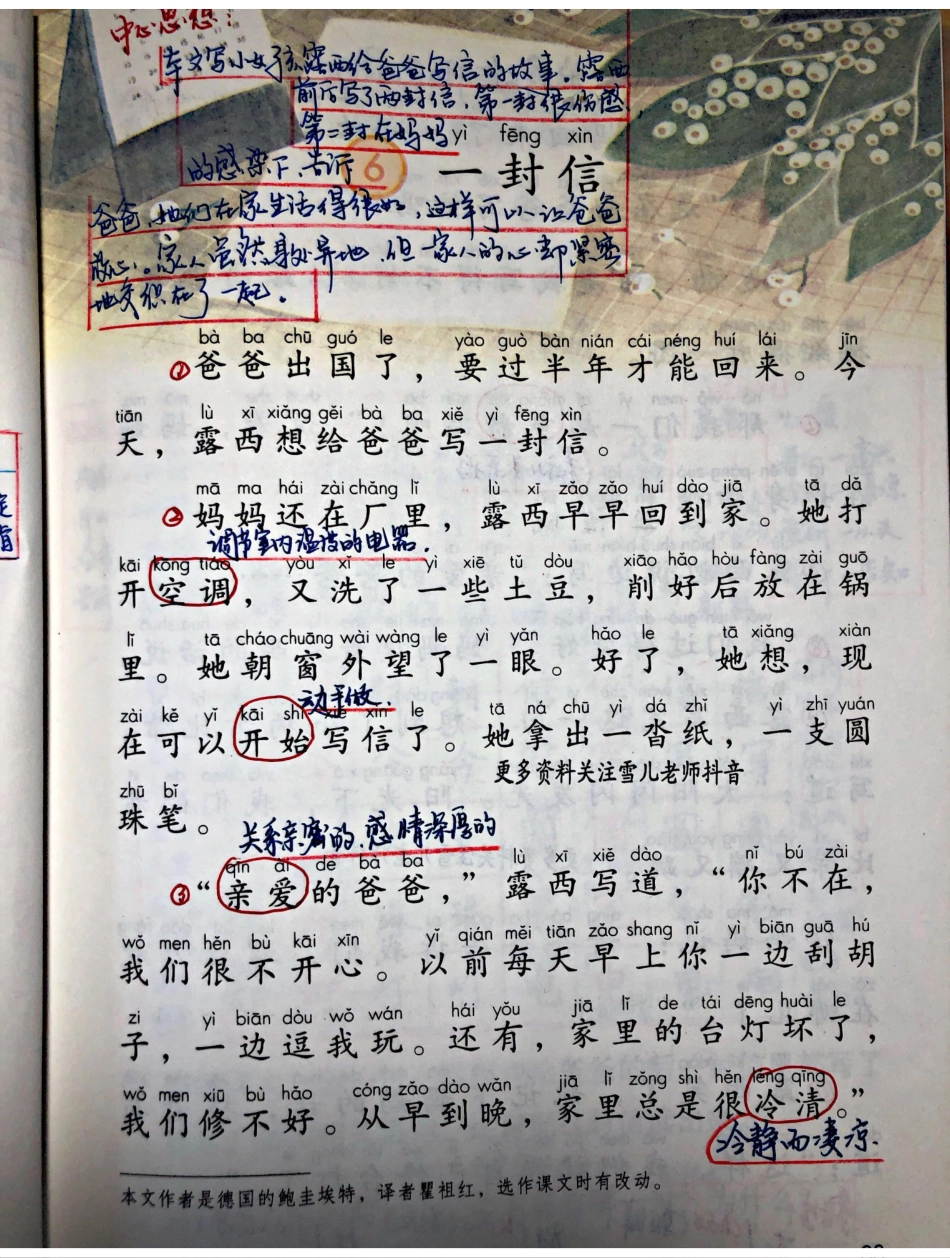 中心思想:
本文写小女孩露西给爸爸写信的故事。露西
前后写了两封信,第一封很伤感,
第二封在妈妈
的感染下,告诉
爸爸,她们在家生活得很好,这样可以让爸爸
放心。家人虽然身处异地,但一家人的心却紧密
地交织在了一起。
yì fēng xìn
6 一封信
bà ba chū guó le yào guò bàn nián cái néng huí lái jīn
①爸爸出国了,要过半年才能回来。今
tiān lù xī xiǎng gěi bà ba xiě yì fēng xìn
天,露西想给爸爸写一封信。
mā ma hái zài chǎng lǐ lù xī zǎo zǎo huí dào jiā tā dǎ
②妈妈还在厂里,露西早早回到家。她打
调节室内温度的电器。
kāi kōng tiáo yòu xǐ le yì xiē tǔ dòu xiāo hǎo hòu fàng zài guō
开空调,又洗了一些土豆,削好后放在锅
lǐ tā cháo chuāng wài wàng le yì yǎn hǎo le tā xiǎng xiàn
里。她朝窗外望了一眼。好了,她想,现
动手做.
zài kě yǐ kāi shǐ xiě xìn le tā ná chū yì dá zhǐ yì zhī yuán
在可以开始写信了。她拿出一沓纸,一支圆
更多资料关注雪儿老师抖音
zhū bǐ
珠笔。
关系亲密的,感情深厚的
qīn ài de bà ba lù xī xiě dào nǐ bú zài
③“亲爱的爸爸,”露西写道,“你不在,
wǒ men hěn bù kāi xīn yǐ qián měi tiān zǎo shang nǐ yì biān guā hú
我们很不开心。以前每天早上你一边刮胡
zi yì biān dòu wǒ wán hái yǒu jiā lǐ de tái dēng huài le
子,一边逗我玩。还有,家里的台灯坏了,
wǒ men xiū bù hǎo cóng zǎo dào wǎn jiā lǐ zǒng shì hěn lěng qīng
我们修不好。从早到晚,家里总是很冷清。”
冷静而凄凉.
本文作者是德国的鲍圭埃特,译者瞿祖红,选作课文时有改动。